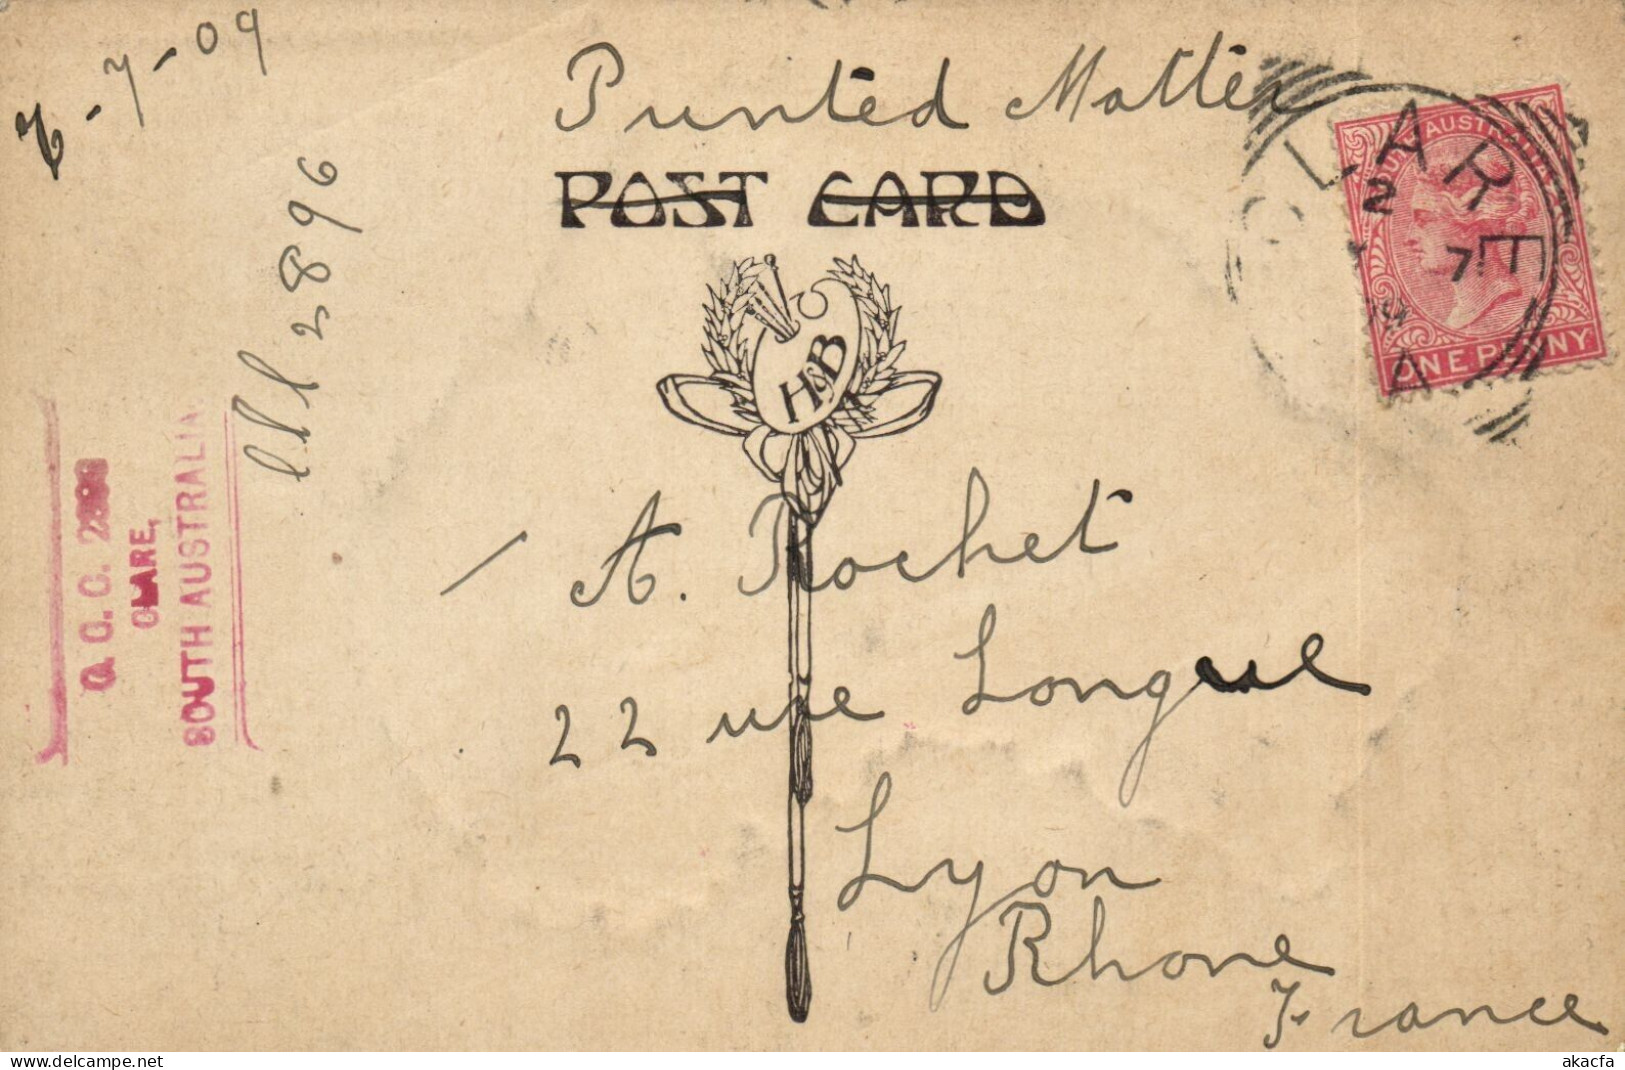 Printed Matter
POST CARD
7-09
2896
CLARE,
SOUTH AUSTRALIA
H&B
CLARE
2
7
A
SOUTH AUSTRALIA
ONE PENNY
A. Rochet
22 rue Longue
Lyon
Rhone
France
www.delcampe.net
akacfa